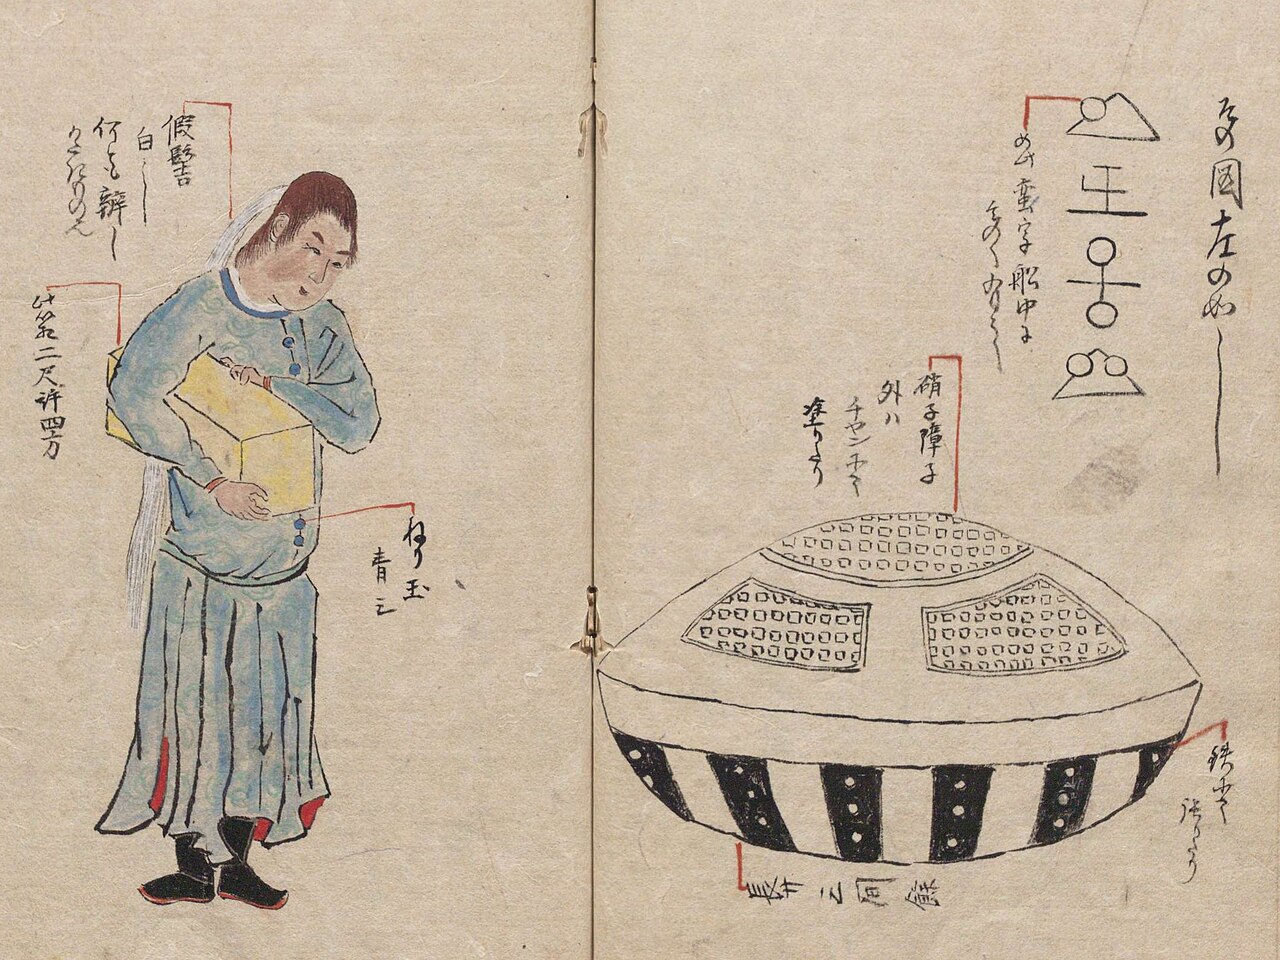 其の図左の如し
如此蛮字船中に
多くありし
硝子障子
外ハ
チヤンにて
塗りたり
鉄にて
張りたり
長サ三間餘
假髻
白し
何とも辨し
ねり玉
青し
此箱二尺許四方